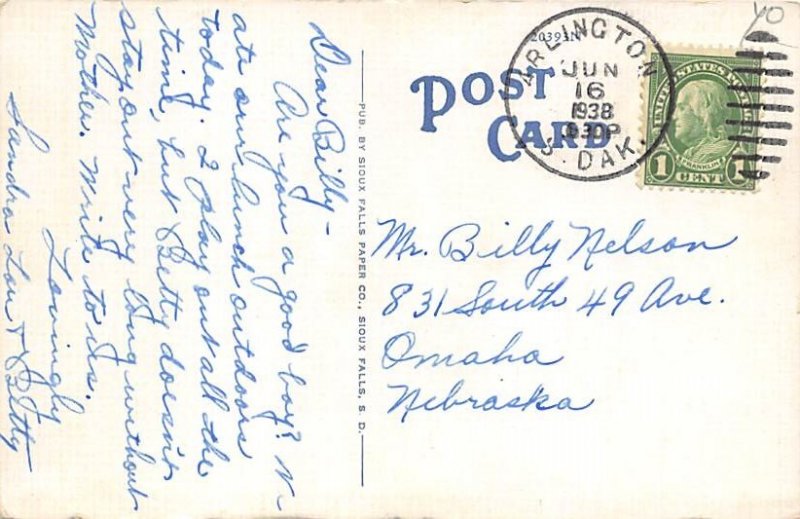 Dear Billy –
Are you a good boy? We
ate our lunch outdoors
today. I play out all the
time, but Betty doesn't
stay out very long without
Mother. Write to us.
Lovingly
Sandra Lou & Betty
PUB. BY SIOUX FALLS PAPER CO., SIOUX FALLS, S. D.
20393N
POST
CARD
ARLINGTON
JUN
16
1938
30P
S. DAK.
UNITED STATES POSTAGE
FRANKLIN
1 CENT 1
YO
Mr. Billy Nelson
831 South 49 Ave.
Omaha
Nebraska